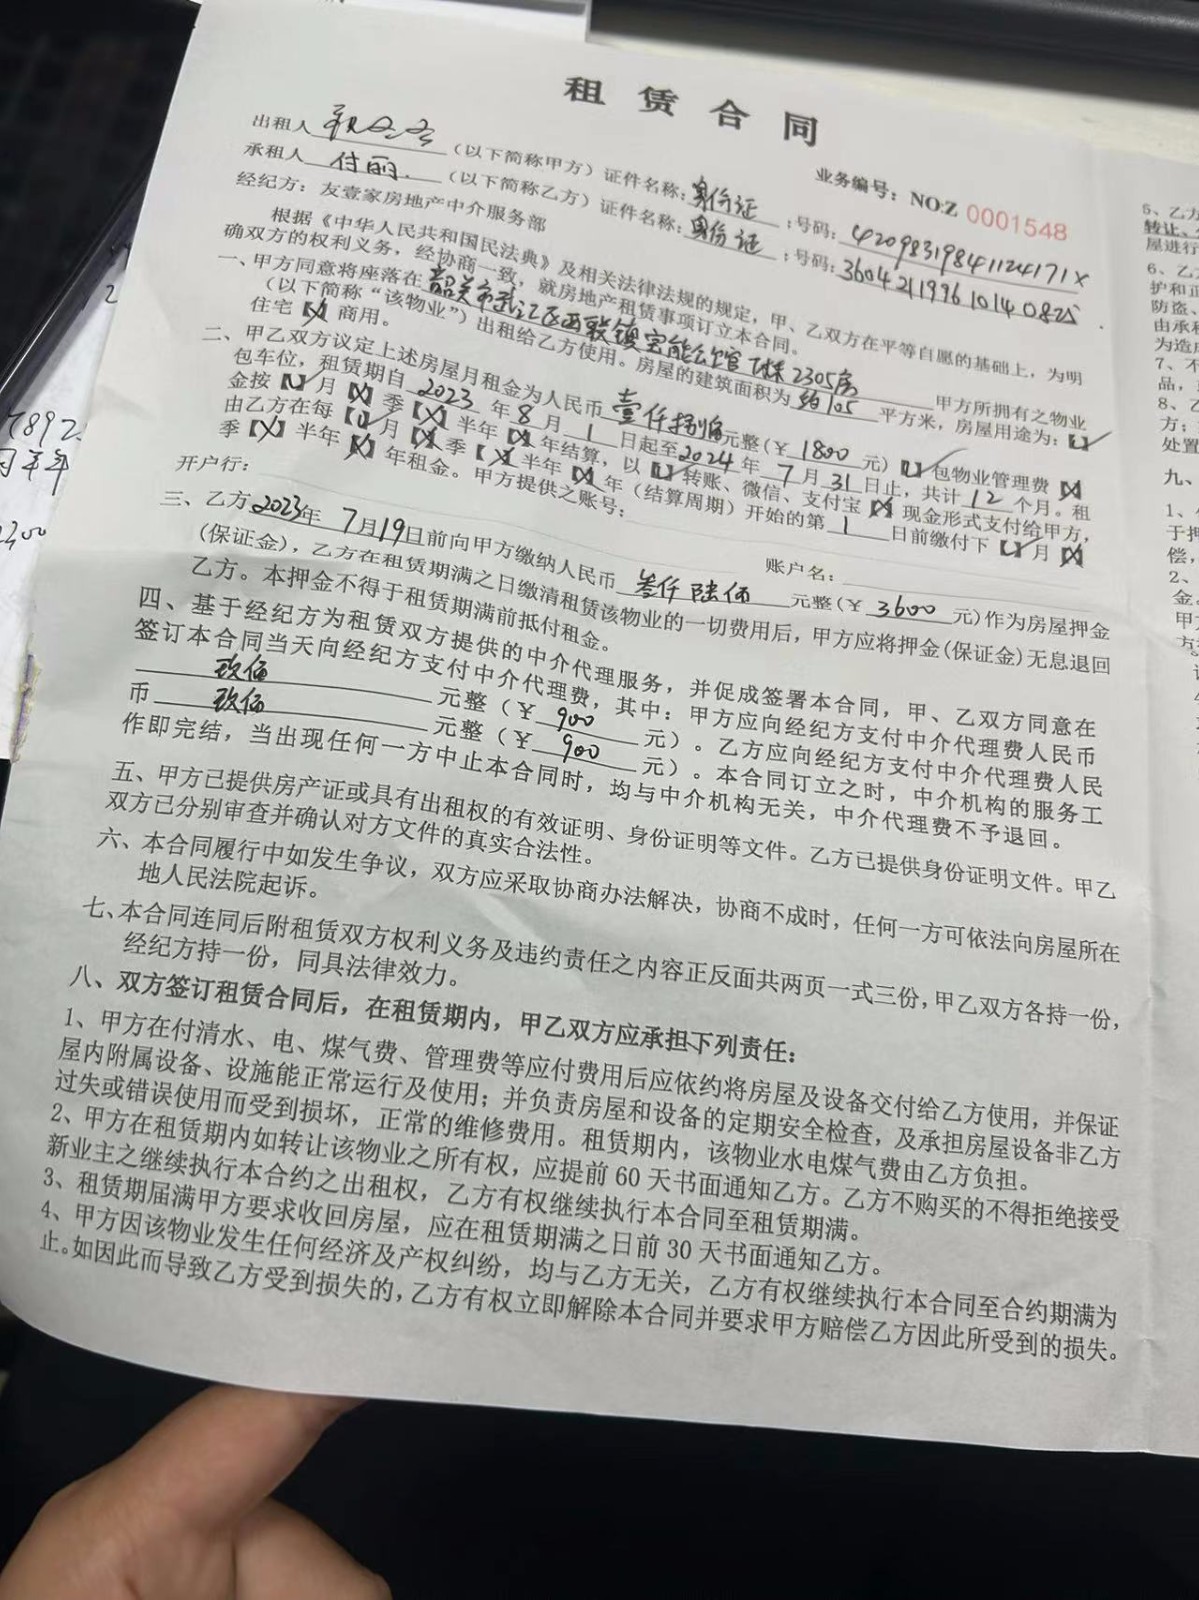 租赁合同
业务编号：NO:Z 0001548
出租人 （以下简称甲方）证件名称：身份证；号码：42098319841124171X
承租人 付丽.（以下简称乙方）证件名称：身份证；号码：360421199610140825.
经纪方：友壹家房地产中介服务部
根据《中华人民共和国民法典》及相关法律法规的规定，甲、乙双方在平等自愿的基础上，为明
确双方的权利义务，经协商一致，就房地产租赁事项订立本合同。
一、甲方同意将座落在韶关市武江区西联镇宝能公馆 2305房 甲方所拥有之物业
（以下简称“该物业”）出租给乙方使用。房屋的建筑面积为 约105 平方米，房屋用途为：【✓】
住宅【X】商用。
二、甲乙双方议定上述房屋月租金为人民币 壹仟捌佰 元整（￥ 1800 元）【✓】包物业管理费【X】
包车位，租赁期自 2023 年 8 月 1 日起至 2024 年 7 月 31 日止，共计 12 个月。租
金按【✓】月【X】季【X】半年【X】年结算，以【✓】转账、微信、支付宝【X】现金形式支付给甲方，
由乙方在每【✓】月【X】季【X】半年【X】年（结算周期）开始的第 1 日前缴付下【✓】月【X】
季【X】半年【X】年租金。甲方提供之账号：
开户行： 账户名：
三、乙方2023年 7月19日前向甲方缴纳人民币 叁仟陆佰 元整（￥ 3600 元）作为房屋押金
（保证金），乙方在租赁期满之日缴清租赁该物业的一切费用后，甲方应将押金（保证金）无息退回
乙方。本押金不得于租赁期满前抵付租金。
四、基于经纪方为租赁双方提供的中介代理服务，并促成签署本合同，甲、乙双方同意在
签订本合同当天向经纪方支付中介代理费，其中：甲方应向经纪方支付中介代理费人民币
玖佰 元整（￥ 900 元）。乙方应向经纪方支付中介代理费人民
币 玖佰 元整（￥ 900 元）。本合同订立之时，中介机构的服务工
作即完结，当出现任何一方中止本合同时，均与中介机构无关，中介代理费不予退回。
五、甲方已提供房产证或具有出租权的有效证明、身份证明等文件。乙方已提供身份证明文件。甲乙
双方已分别审查并确认对方文件的真实合法性。
六、本合同履行中如发生争议，双方应采取协商办法解决，协商不成时，任何一方可依法向房屋所在
地人民法院起诉。
七、本合同连同后附租赁双方权利义务及违约责任之内容正反面共两页一式三份，甲乙双方各持一份，
经纪方持一份，同具法律效力。
八、双方签订租赁合同后，在租赁期内，甲乙双方应承担下列责任：
1、甲方在付清水、电、煤气费、管理费等应付费用后应依约将房屋及设备交付给乙方使用，并保证
屋内附属设备、设施能正常运行及使用；并负责房屋和设备的定期安全检查，及承担房屋设备非乙方
过失或错误使用而受到损坏，正常的维修费用。租赁期内，该物业水电煤气费由乙方负担。
2、甲方在租赁期内如转让该物业之所有权，应提前60天书面通知乙方。乙方不购买的不得拒绝接受
新业主之继续执行本合约之出租权，乙方有权继续执行本合同至租赁期满。
3、租赁期届满甲方要求收回房屋，应在租赁期满之日前30天书面通知乙方。
4、甲方因该物业发生任何经济及产权纠纷，均与乙方无关，乙方有权继续执行本合同至合约期满为
止。如因此而导致乙方受到损失的，乙方有权立即解除本合同并要求甲方赔偿乙方因此所受到的损失。
5、乙方
转让、
屋进行
6、乙
护和正
防盗、
由承
为造
7、不
品，
8、乙
方；
处置
九、
1、
于押
偿，
2、
金。
甲
方